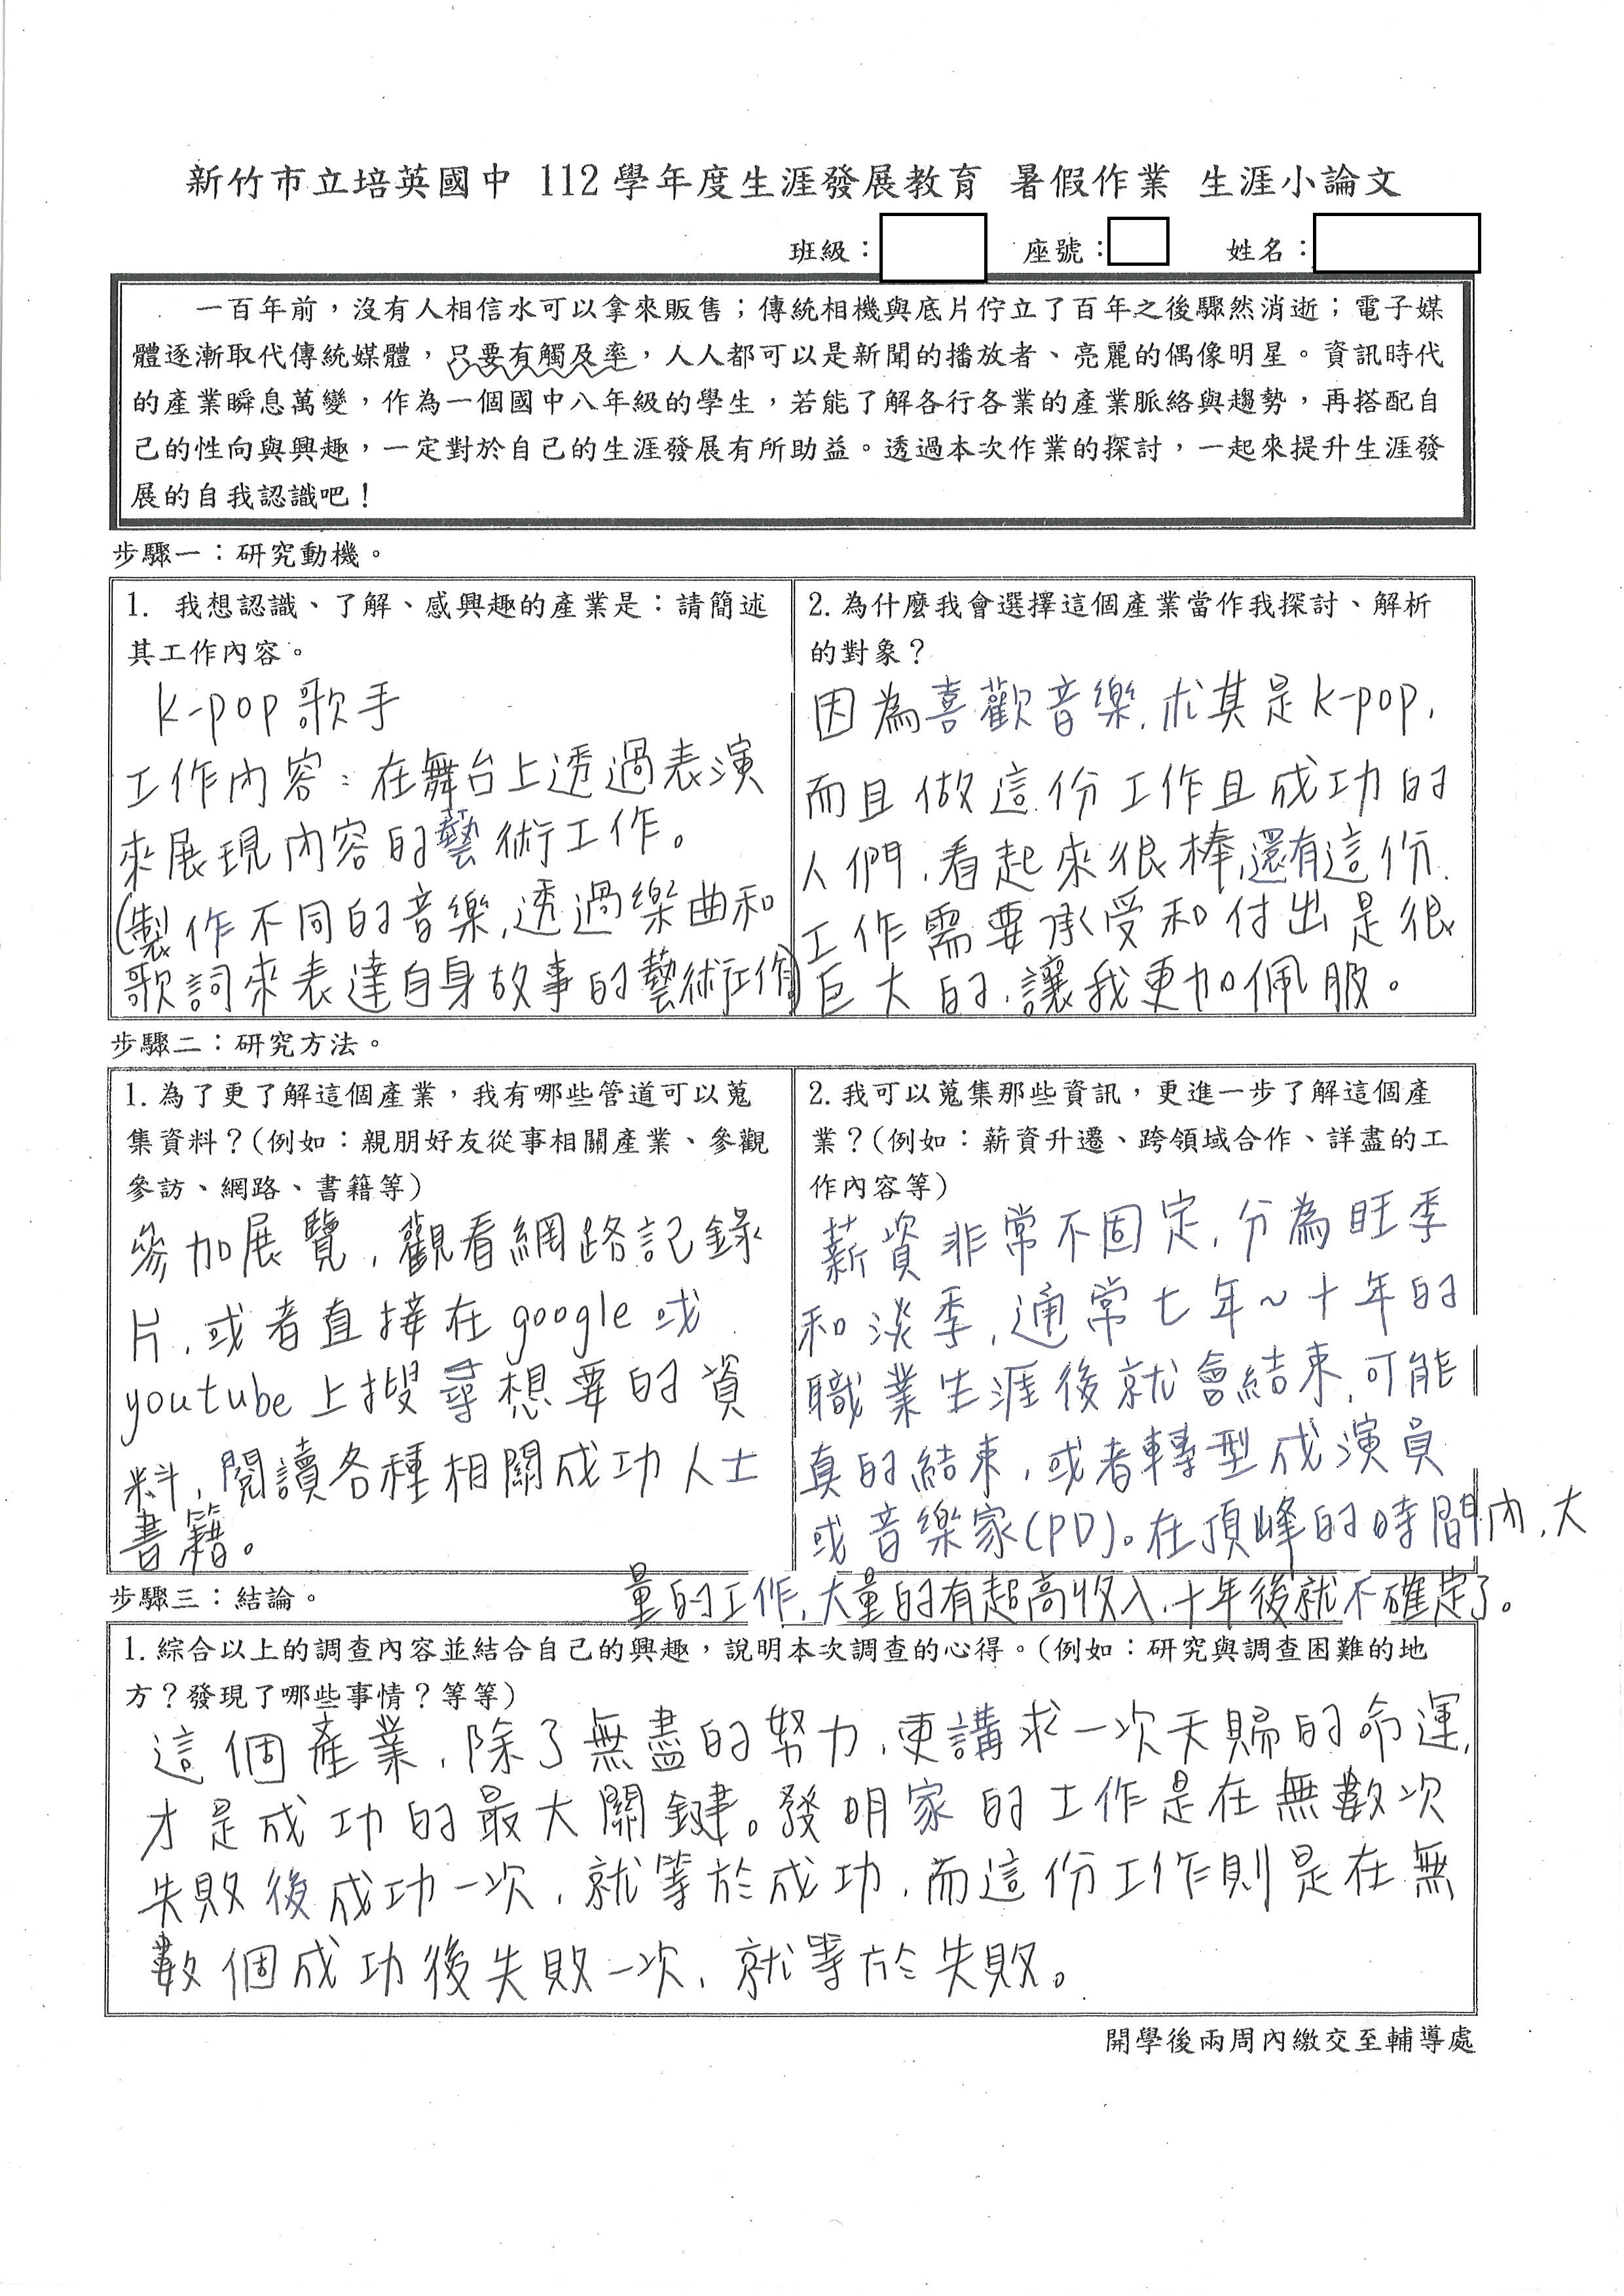 新竹市立培英國中 112學年度生涯發展教育 暑假作業 生涯小論文
班級： 座號： 姓名：
一百年前，沒有人相信水可以拿來販售；傳統相機與底片佇立了百年之後驟然消逝；電子媒
體逐漸取代傳統媒體，只要有觸及率，人人都可以是新聞的播放者、亮麗的偶像明星。資訊時代
的產業瞬息萬變，作為一個國中八年級的學生，若能了解各行各業的產業脈絡與趨勢，再搭配自
己的性向與興趣，一定對於自己的生涯發展有所助益。透過本次作業的探討，一起來提升生涯發
展的自我認識吧！
步驟一：研究動機。
1. 我想認識、了解、感興趣的產業是：請簡述
其工作內容。
K-pop歌手
工作內容：在舞台上透過表演
來展現內容的藝術工作。
(製作不同的音樂，透過樂曲和
歌詞來表達自身故事的藝術工作)
2.為什麼我會選擇這個產業當作我探討、解析
的對象？
因為喜歡音樂，尤其是K-pop，
而且做這份工作且成功的
人們，看起來很棒，還有這份
工作需要承受和付出是很
巨大的，讓我更加佩服。
步驟二：研究方法。
1.為了更了解這個產業，我有哪些管道可以蒐
集資料？(例如：親朋好友從事相關產業、參觀
參訪、網路、書籍等)
參加展覽，觀看網路記錄
片，或者直接在google或
youtube上搜尋想要的資
料，閱讀各種相關成功人士
書籍。
2.我可以蒐集那些資訊，更進一步了解這個產
業？(例如：薪資升遷、跨領域合作、詳盡的工
作內容等)
薪資非常不固定，分為旺季
和淡季，通常七年~十年的
職業生涯後就會結束，可能
真的結束，或者轉型成演員
或音樂家(PD)。在頂峰的時間內，大
量的工作，大量的有超高收入，十年後就不確定了。
步驟三：結論。
1.綜合以上的調查內容並結合自己的興趣，說明本次調查的心得。(例如：研究與調查困難的地
方？發現了哪些事情？等等)
這個產業，除了無盡的努力，更講求一次天賜的命運，
才是成功的最大關鍵。發明家的工作是在無數次
失敗後成功一次，就等於成功，而這份工作則是在無
數個成功後失敗一次，就等於失敗。
開學後兩周內繳交至輔導處